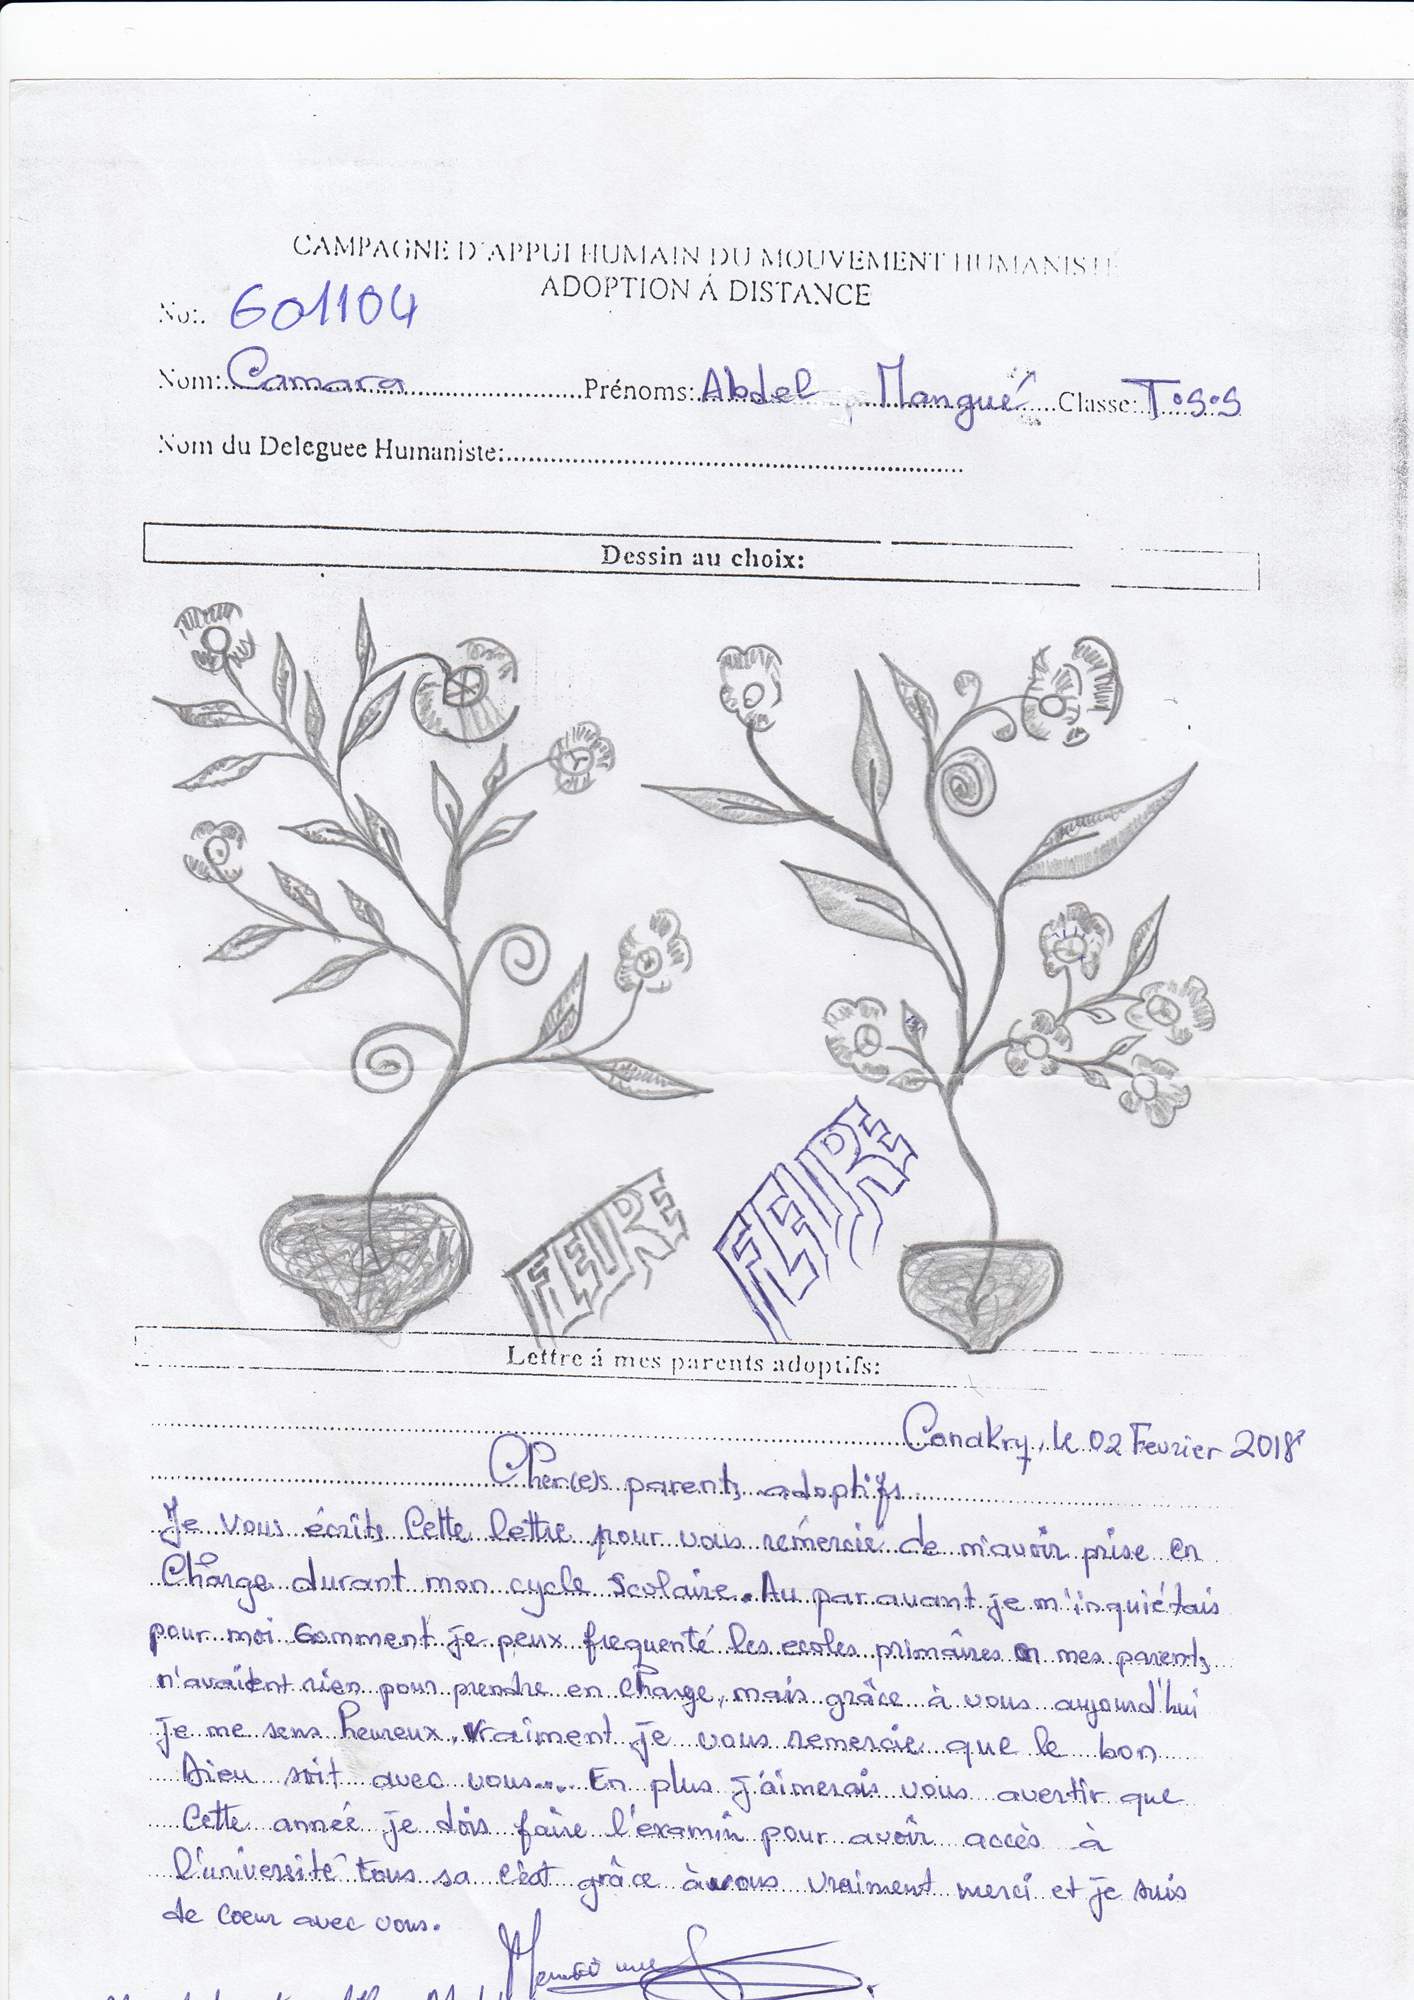 CAMPAGNE D'APPUI HUMAIN DU MOUVEMENT HUMANISTE
ADOPTION Á DISTANCE
No:. 601104
Nom: Camara Prénoms: Abdel Mangué Classe: T.S.S
Nom du Deleguee Humaniste:
Dessin au choix:
FLEURE
FLEURE
Lettre á mes parents adoptifs:
Conakry, le 02 Fevrier 2018
Cher(e)s parents adoptifs
Je vous écrits cette lettre pour vous remercié de m'avoir prise en
charge durant mon cycle scolaire. Au paravant je m'inquiétais
pour moi comment je peux frequenté les ecoles primaires mes parents
n'avaient rien pour prendre en charge, mais grâce à vous aujourd'hui
je me sens heureux. Vraiment je vous remercie que le bon
Dieu soit avec vous... En plus j'aimerais vous avertir que
cette année je dois faire l'examin pour avoir accès à
l'université tous sa c'est grâce à vous vraiment merci et je suis
de coeur avec vous.